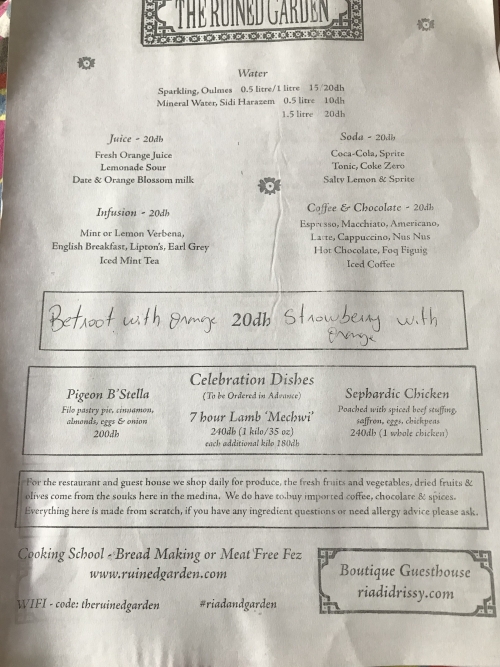 THE RUINED GARDEN
Water
Sparkling, Oulmes 0.5 litre/1 litre 15/20dh
Mineral Water, Sidi Harazem 0.5 litre 10dh
1.5 litre 20dh
Juice - 20dh
Fresh Orange Juice
Lemonade Sour
Date & Orange Blossom milk
Soda - 20dh
Coca-Cola, Sprite
Tonic, Coke Zero
Salty Lemon & Sprite
Infusion - 20dh
Mint or Lemon Verbena,
English Breakfast, Lipton's, Earl Grey
Iced Mint Tea
Coffee & Chocolate - 20dh
Espresso, Macchiato, Americano,
Latte, Cappuccino, Nus Nus
Hot Chocolate, Foq Figuig
Iced Coffee
Betroot with Orange 20dh Strawberry with
Orange
Celebration Dishes
(To be Ordered in Advance)
Pigeon B'Stella
Filo pastry pie, cinnamon,
almonds, eggs & onion
200dh
7 hour Lamb 'Mechwi'
240dh (1 kilo/35 oz)
each additional kilo 180dh
Sephardic Chicken
Poached with spiced beef stuffing,
saffron, eggs, chickpeas
240dh (1 whole chicken)
For the restaurant and guest house we shop daily for produce, the fresh fruits and vegetables, dried fruits &
olives come from the souks here in the medina. We do have to buy imported coffee, chocolate & spices.
Everything here is made from scratch, if you have any ingredient questions or need allergy advice please ask.
Cooking School - Bread Making or Meat Free Fez
www.ruinedgarden.com
WIFI - code: theruinedgarden #riadandgarden
Boutique Guesthouse
riadidrissy.com